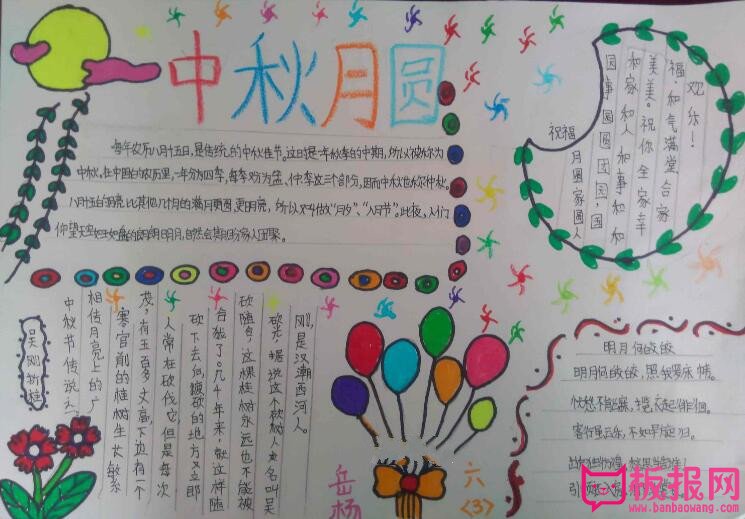 中秋月圆
每年农历八月十五日,是传统的中秋佳节。这时是一年秋季的中期,所以被称为
中秋。在中国的农历里,一年分为四季,每季又分为孟、仲、季三个部分,因而中秋也称仲秋。
八月十五的月亮比其他几个月的满月更圆,更明亮,所以又叫做"月夕"、"八月节"。此夜,人们
仰望天空如玉如盘的朗朗明月,自然会期盼家人团聚。
祝福
月圆家圆人
圆事圆圆团团,国
和家和人和事和和
美美。祝你全家幸
福、和气满堂、合家
欢乐!
吴刚折桂
中秋节传说之
相传月亮上的广
寒宫前的桂树生长繁
茂,有五百多丈高,下边有一个
人常在砍伐它,但是每次
砍下去
被砍的地方又立即
合拢了。几千年来,就这样随
砍随合,这棵桂树永远也不能被
砍光。据说这个砍树人名叫吴
刚,是汉潮西河人。
明月何皎皎
明月何皎皎,照我罗床帏。
忧愁不能寐,揽衣起徘徊。
客行虽云乐,不如早旋归。
六〈3〉
岳杨
板报网
www.banbaowang.com